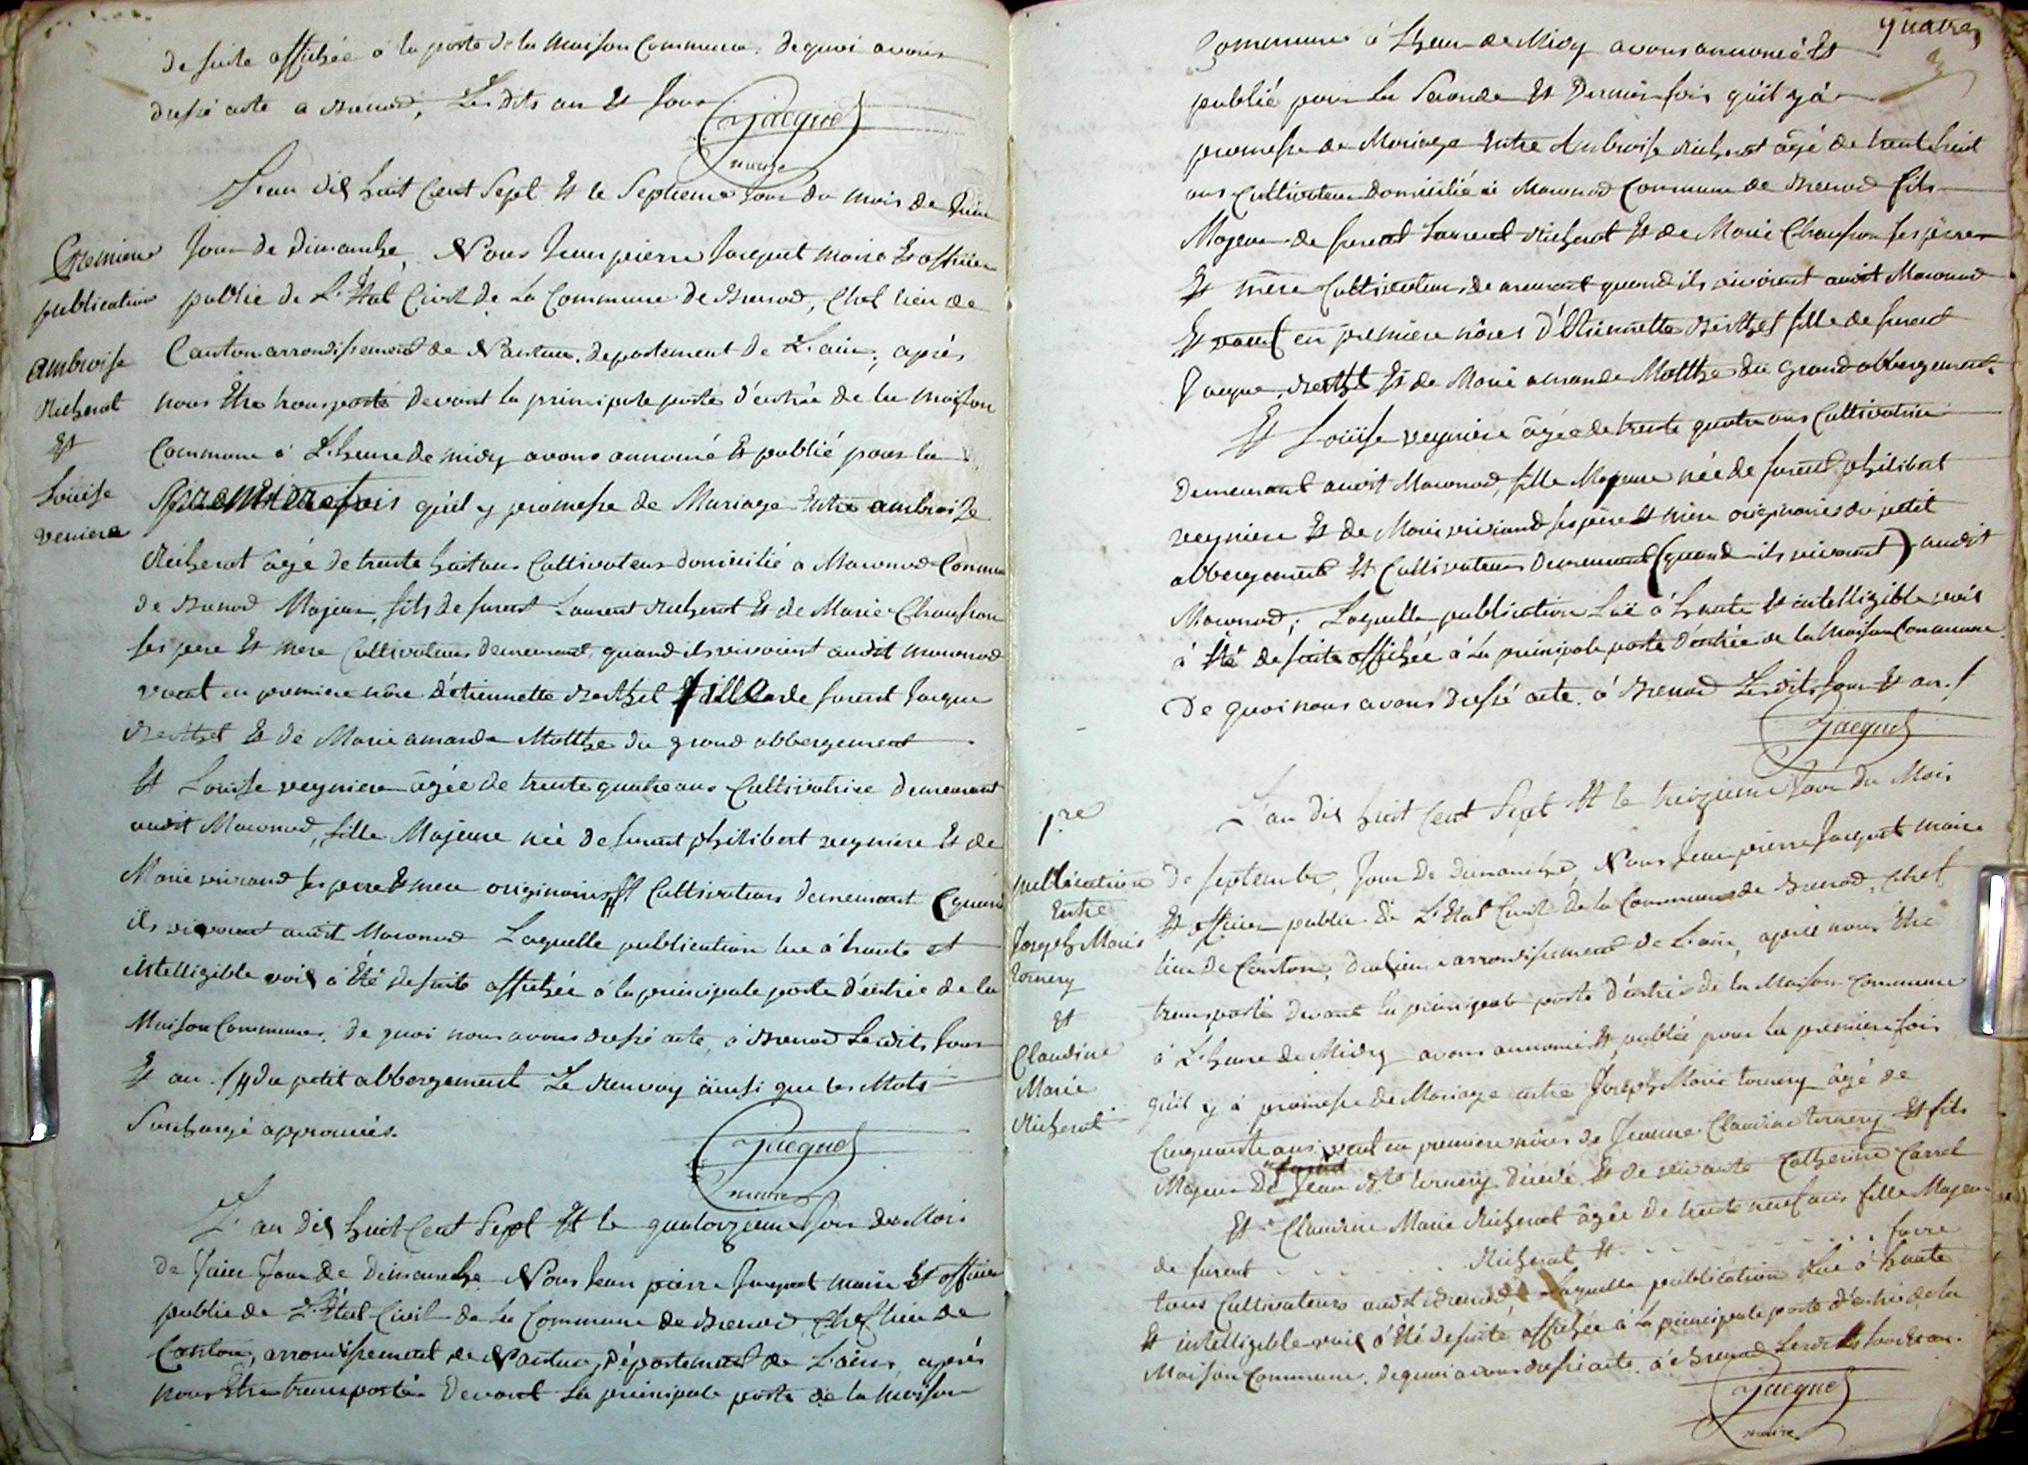 de suite affichée à la porte de la maison Commune. de quoi avons
dressé acte a Brenod, Les dits an Et Jour
Jacquet
maire
L'an dix huit Cent Sept Et le Septieme Jour du mois de Juin
Premiere
publication
Ambroise
Richerot
Et
Louise
Veniere
Jour de dimanche, Nous Jean pierre Jacquet maire Et officier
public de L'Etat Civil de la Commune de Brenod, Chef lieu de
Canton arrondissement de Nantua, departement de L'ain, après
nous Etre transporté devant la principale porte d'entrée de la maison
Commune à L'heure de midy avons annoncé Et publié pour la
premiere fois qu'il y promesse de Mariage Entre ambroise
Richerot âgé de trente huit ans Cultivateur domicilié a Macconod Commune
de Brenod Majeur, fils de furent Laurent Richerot Et de Marie Chausson
ses pere Et mere Cultivateurs demeurant, quand ils vivoient audit macconod
veuf en premiere nôce d'étiennette Berthet fille de furent Jacque
Berthet Et de Marie amande Matthe du grand abbergement
Et Louise veyniere âgée de trente quatre ans Cultivatrice demeurant
audit Macconod, fille Majeure née de furent phillibert veyniere Et de
Marie vivrand ses pere Et mere originaires Cultivateurs demeurant (quand
ils vivoient audit Macconod Laquelle publication lue à haute et
intelligible voix à Été de suite affichée à la principale porte d'entrée de la
Maison Commune. de quoi nous avons dressé acte, à Brenod Lesdits Jour
Et an. du petit abbergement Le Renvoy ainsi que les Mots
Surchargé approuvés.
Jacquet
maire
L'an dix huit Cent Sept Et le quatorzieme Jour du Mois
de Juin Jour de dimanche Nous Jean pierre Jacquet maire Et officier
public de L'Etat Civil de la Commune de Brenod, Chef lieu de
Canton, arrondissement de Nantua, département de L'ain, après
nous Etre transporté devant la principale porte de la maison
quatre
Commune à L'heure de Midy avons annoncé Et
publié pour la Seconde Et Dernier fois qu'il y à
promesse de Mariage Entre Ambroise Richerot âgé de trente huit
ans Cultivateur domicilié à Macconod Commune de Brenod fils
Majeur de furent Laurent Richerot Et de Marie Chausson ses pere
Et mere Cultivateurs demeurant quand ils vivoient audit Macconod
Et veuf en premiere nôces d'Etiennette Berthet fille de furent
Jacque Berthet Et de Marie amande Matthe du grand abbergement.
Et Louise veyniere âgée de trente quatre ans Cultivatrice
demeurant audit Macconod, fille Majeure née de furent philibert
veyniere Et de Marie vivrand ses pere Et mere originaires du petit
abbergement Et Cultivateurs demeurant (quand ils vivoient) audit
Macconod; Laquelle publication Luë à haute Et intelligible voix
à Été de suite affichée à la principale porte d'entrée de la Maison Commune
De quoi nous avons dressé acte. à Brenod Lesdits Jour Et an.
Jacquet
1.re
publication
Entre
Joseph Marie
tornery
Et
Claudine
Marie
Richerot
L'an dix huit Cent Sept Et le treizieme Jour du Mois
de septembre, Jour de dimanche, Nous Jean pierre Jacquet maire
Et officier public de L'Etat Civil de la Commune de Brenod, Chef
lieu de Canton, arrondissement de L'ain, après nous Etre
transporté devant la principale porte d'entrée de la Maison Commune
à L'heure de Midy avons annoncé Et publié pour la premiere fois
qu'il y à promesse de Mariage entre Joseph Marie tornery âgé de
Cinquante ans, veuf en premiere nôces de Jeanne Claudine tornery Et fils
Majeur de Jean Bte tornery décédé Et de vivante Catherine Carrel
Et Claudine Marie Richerot âgée de trente neuf ans fille Majeure
de furent . . . . . . Richerot Et . . . . . . . . favre
tous Cultivateurs audit Brenod Laquelle publication Lue à haute
Et intelligible voix à Été de suite affichée à la principale porte d'entrée de la
Maison Commune. de quoi avons dressé acte. à Brenod Lesdits Jour Et an.
Jacquet
maire